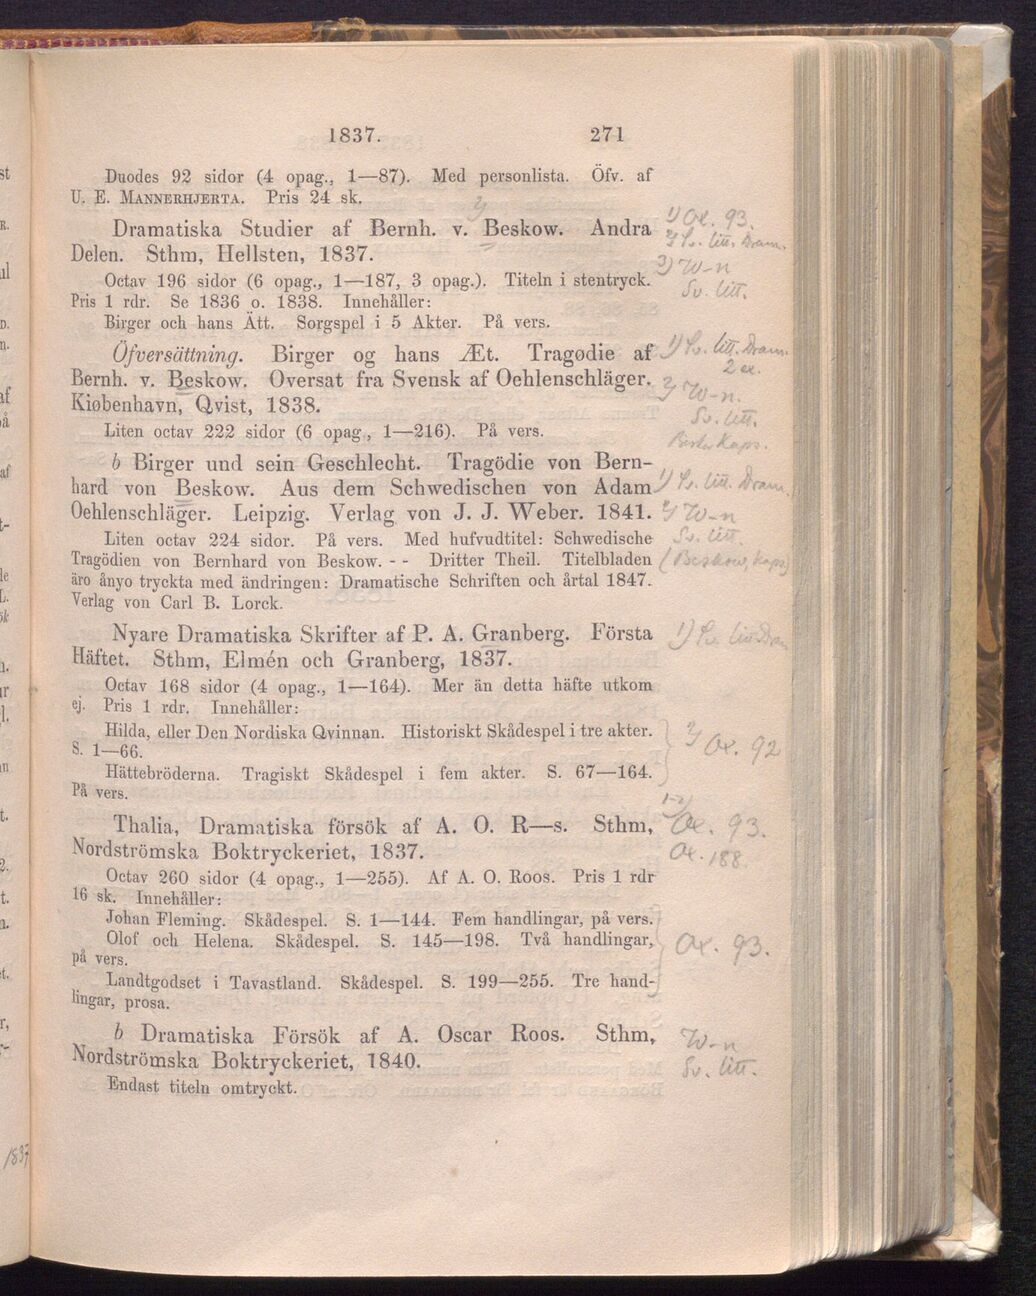 1837. 271
Duodes 92 sidor (4 opag., 1—87). Med personlista. Öfv. af
U. E. Mannerhjerta. Pris 24 sk.
Dramatiska Studier af Bernh. v. Beskow. Andra
Delen. Sthm, Hellsten, 1837.
Octav 196 sidor (6 opag., 1—187, 3 opag.). Titeln i stentryck.
Pris 1 rdr. Se 1836 o. 1838. Innehåller:
Birger och hans Ätt. Sorgspel i 5 Akter. På vers.
Öfversättning. Birger og hans Æt. Tragødie af
Bernh. v. Beskow. Oversat fra Svensk af Oehlenschläger.
Kiøbenhavn, Qvist, 1838.
Liten octav 222 sidor (6 opag., 1—216). På vers.
b Birger und sein Geschlecht. Tragödie von Bern-
hard von Beskow. Aus dem Schwedischen von Adam
Oehlenschläger. Leipzig. Verlag von J. J. Weber. 1841.
Liten octav 224 sidor. På vers. Med hufvudtitel: Schwedische
Tragödien von Bernhard von Beskow. - - Dritter Theil. Titelbladen
äro ånyo tryckta med ändringen: Dramatische Schriften och årtal 1847.
Verlag von Carl B. Lorck.
Nyare Dramatiska Skrifter af P. A. Granberg. Första
Häftet. Sthm, Elmén och Granberg, 1837.
Octav 168 sidor (4 opag., 1—164). Mer än detta häfte utkom
ej. Pris 1 rdr. Innehåller:
Hilda, eller Den Nordiska Qvinnan. Historiskt Skådespel i tre akter.
S. 1—66.
Hättebröderna. Tragiskt Skådespel i fem akter. S. 67—164.
På vers.
Thalia, Dramatiska försök af A. O. R—s. Sthm,
Nordströmska Boktryckeriet, 1837.
Octav 260 sidor (4 opag., 1—255). Af A. O. Roos. Pris 1 rdr
16 sk. Innehåller:
Johan Fleming. Skådespel. S. 1—144. Fem handlingar, på vers.
Olof och Helena. Skådespel. S. 145—198. Två handlingar,
på vers.
Landtgodset i Tavastland. Skådespel. S. 199—255. Tre hand-
lingar, prosa.
b Dramatiska Försök af A. Oscar Roos. Sthm,
Nordströmska Boktryckeriet, 1840.
Endast titeln omtryckt.
1) Ox. 93.
2) Sv. litt. Dram.
3) W-n
Sv. litt.
1) Sv. litt. Dram.
2 ex.
2) W-n.
Sv. litt.
1) Sv. litt. Dram.
2) W-n
Sv. litt.
(Beskow, Kaps)
2) Ox. 92
1-2)
Ox. 93.
Ox. 188
Ox. 93.
W-n
Sv. litt.
1837